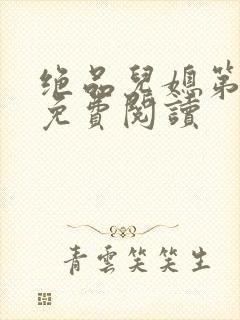 绝品兒媳第
免費閱讀
青雲笑笑生